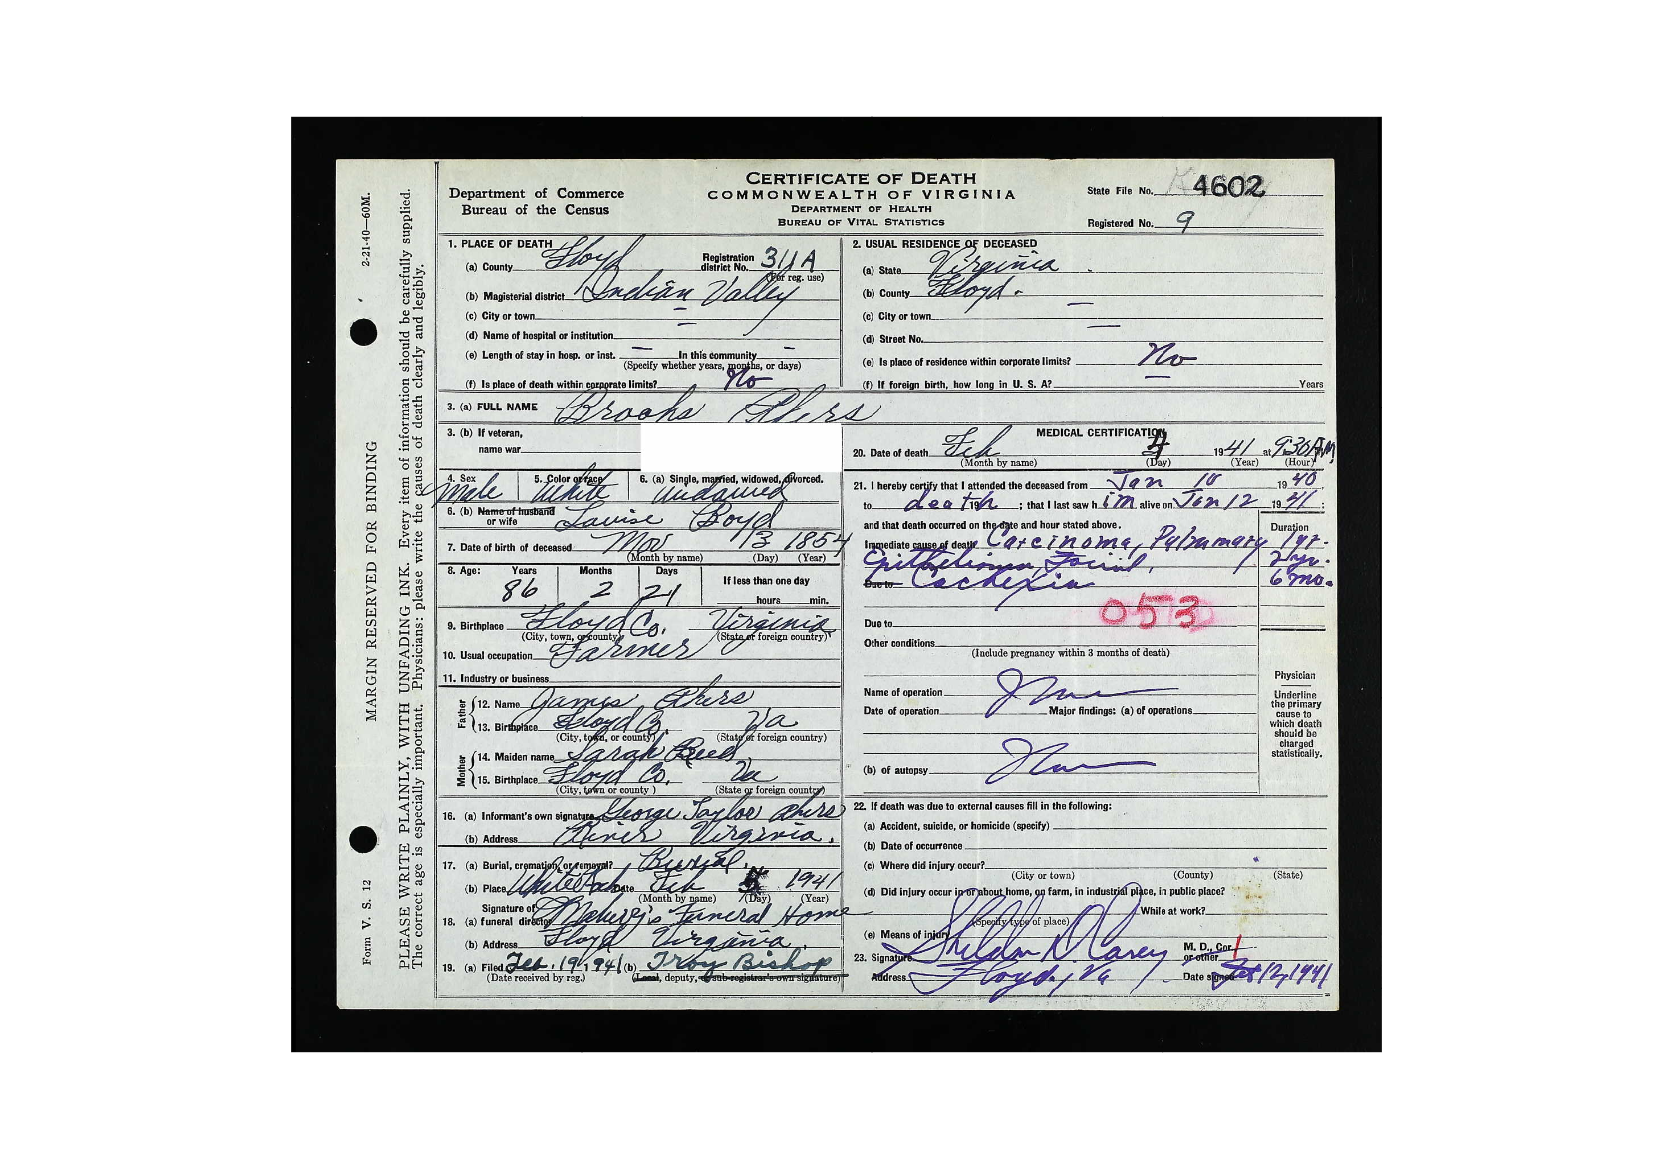 CERTIFICATE OF DEATH
COMMONWEALTH OF VIRGINIA
DEPARTMENT OF HEALTH
BUREAU OF VITAL STATISTICS
Department of Commerce
Bureau of the Census
State File No. 4602
Registered No. 9
Form V. S. 12
2-21-40—60M.
MARGIN RESERVED FOR BINDING
PLEASE WRITE PLAINLY, WITH UNFADING INK. Every item of information should be carefully supplied.
The correct age is especially important. Physicians: please write the causes of death clearly and legibly.
1. PLACE OF DEATH
(a) County Floyd Registration district No. 311A
(For reg. use)
(b) Magisterial district Indian Valley
(c) City or town —
(d) Name of hospital or institution
(e) Length of stay in hosp. or inst. — In this community —
(Specify whether years, months, or days)
(f) Is place of death within corporate limits? No
2. USUAL RESIDENCE OF DECEASED
(a) State Virginia
(b) County Floyd.
(c) City or town —
(d) Street No. —
(e) Is place of residence within corporate limits? No
(f) If foreign birth, how long in U. S. A? — Years
3. (a) FULL NAME Brooks Akers
3. (b) If veteran,
name war
4. Sex Male
5. Color or race White
6. (a) Single, married, widowed, divorced. Widowed
6. (b) Name of husband
or wife Louise Boyd
7. Date of birth of deceased Nov 13 1854
(Month by name) (Day) (Year)
8. Age: Years Months Days If less than one day
86 2 21 hours min.
9. Birthplace Floyd Co. Virginia
(City, town, or county) (State or foreign country)
10. Usual occupation Farmer
11. Industry or business
Father
12. Name James Akers
13. Birthplace Floyd Co. Va
(City, town, or county) (State or foreign country)
Mother
14. Maiden name Sarah Reed
15. Birthplace Floyd Co. Va
(City, town or county ) (State or foreign country)
16. (a) Informant's own signature George Taylor Akers
(b) Address Riner Virginia.
17. (a) Burial, cremation, or removal? Burial.
(b) Place White Oak Date Feb 5 1941
(Month by name) (Day) (Year)
Signature of
18. (a) funeral director Maberry's Funeral Home
(b) Address Floyd Virginia.
19. (a) Filed Feb. 19, 1941 (b) Troy Bishop
(Date received by reg.) (Local, deputy, or sub-registrar's own signature)
MEDICAL CERTIFICATION
20. Date of death Feb 4 1941 at 9:30 A M.
(Month by name) (Day) (Year) (Hour)
21. I hereby certify that I attended the deceased from Jan 10 1940
to death 19 ; that I last saw him alive on Jan 12 1941 ;
and that death occurred on the date and hour stated above. Duration
Immediate cause of death Carcinoma, Pulmonary 1 yr.
Epithelioma, Facial, 2 yr.
Due to Cachexia 6 mo.
053
Due to
Other conditions
(Include pregnancy within 3 months of death)
Name of operation None
Date of operation Major findings: (a) of operations
(b) of autopsy None
Physician
Underline
the primary
cause to
which death
should be
charged
statistically.
22. If death was due to external causes fill in the following:
(a) Accident, suicide, or homicide (specify)
(b) Date of occurrence
(c) Where did injury occur?
(City or town) (County) (State)
(d) Did injury occur in or about home, on farm, in industrial place, in public place?
While at work?
(Specify type of place)
(e) Means of injury
23. Signature Sheldon Carey M. D., Cor.
or other
Address Floyd, Va Date signed 12, 1941